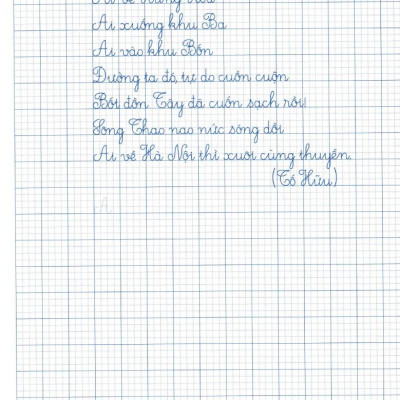 Ai về
Ai xuống khu Ba
Ai vào khu Bốn
Đường ta đó, tự do cuồn cuộn
Bốt đồn Tây đã cuốn sạch rồi!
Sông Thao nao nức sóng dồi
Ai về Hà Nội thì xuôi cùng thuyền.
(Tố Hữu)